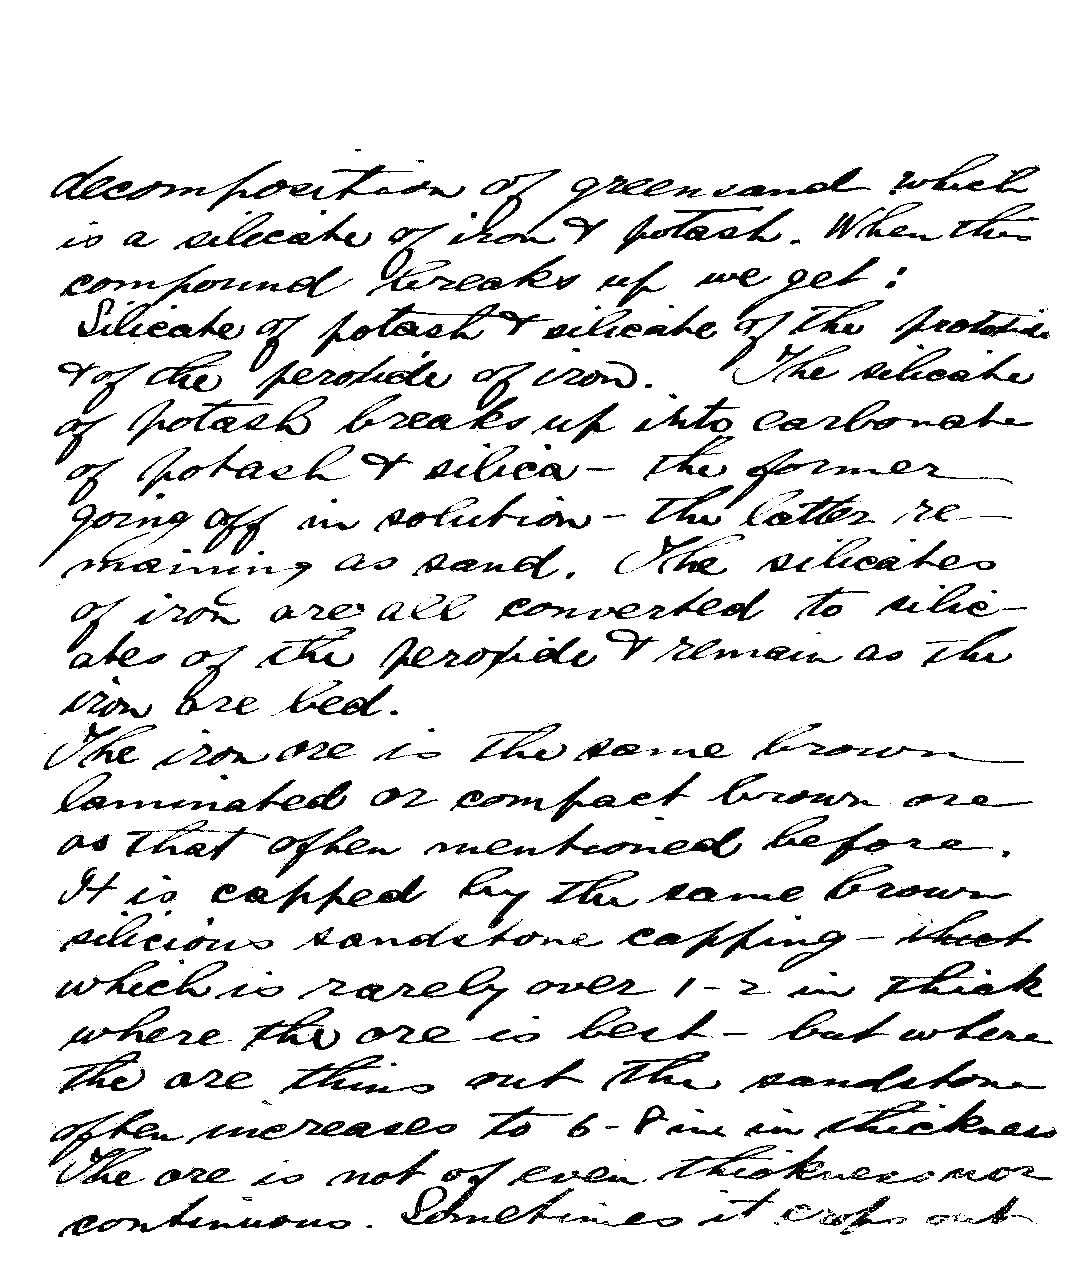 decomposition of greensand which
is a silicate of iron & potash. When this
compound breaks up we get:
Silicate of potash & silicate of the protoxide
& of the peroxide of iron. The silicate
of potash breaks up into carbonate
of potash & silica – the former
going off in solution – the latter re-
maining as sand. The silicates
of iron are all converted to silic-
ates of the peroxide & remain as the
iron ore bed.
The iron ore is the same brown
laminated or compact brown ore
as that often mentioned before.
It is capped by the same brown
silicious sandstone capping – that
which is rarely over 1-2 in thick
where the ore is best – but where
the ore thins out the sandstone
often increases to 6-8 in in thickness
The ore is not of even thickness nor
continuous. Sometimes it crops out